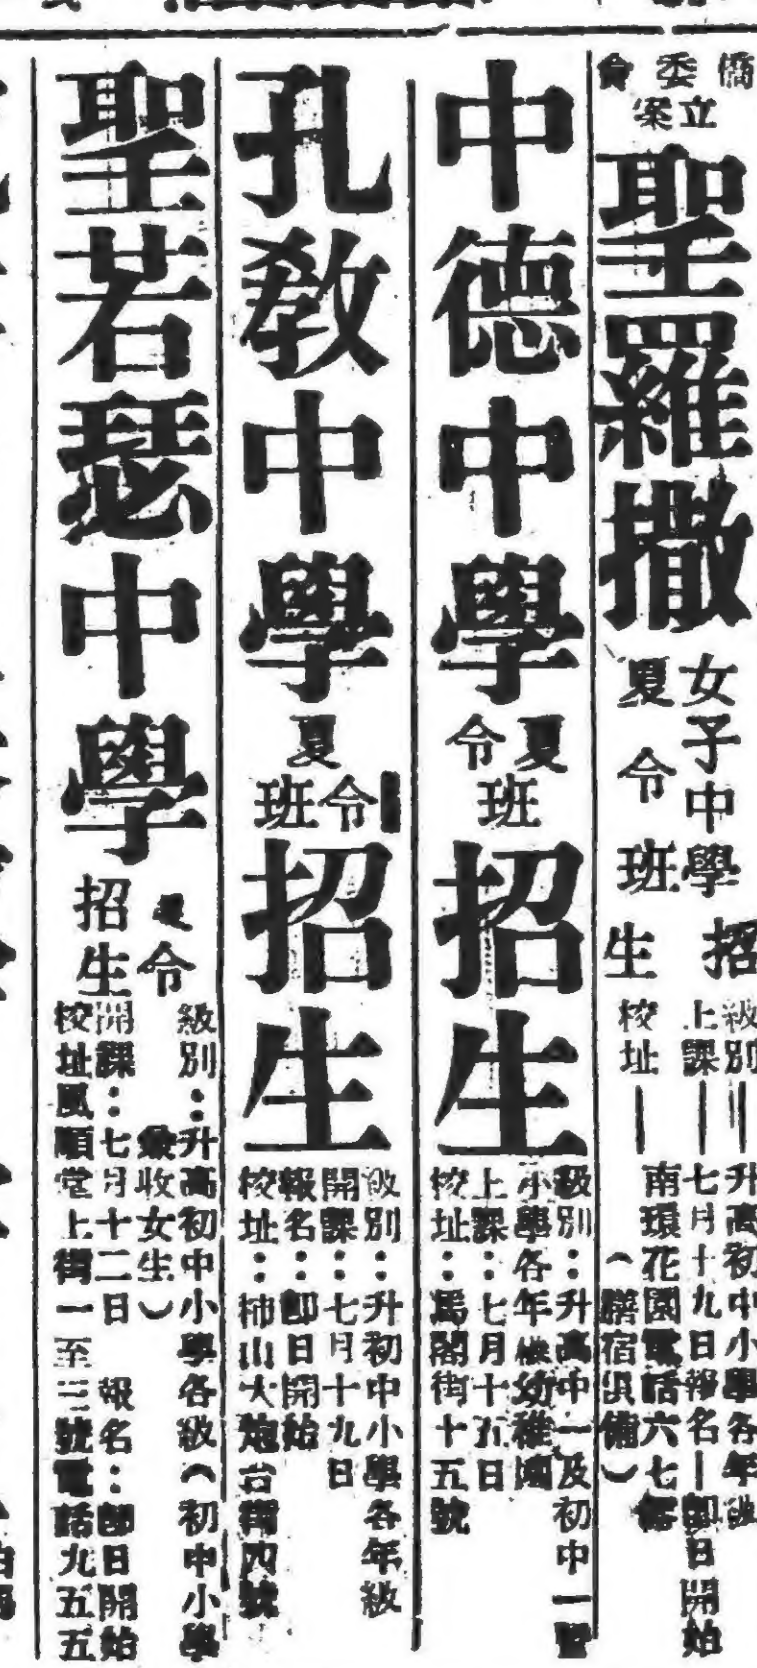 僑委會
立案
聖羅撒
女子中學
夏令班
招生
級別——升高初中小學各年級
上課——七月十九日報名—即日開始
校址——南環花園電話六七
（膳宿俱備）
中德中學
夏令班
招生
級別：升高中一及初中一暨
小學各年級幼稚園
上課：七月十五日
校址：馬閣街十五號
孔教中學
夏令班
招生
級別：升初中小學各年級
開課：七月十九日
報名：即日開始
校址：柿山大炮台街四號
聖若瑟中學
夏令
招生
級別：升高初中小學各級（初中小學
兼收女生）
開課：七月十二日　報名：即日開始
校址風順堂上街一至三號電話九五五